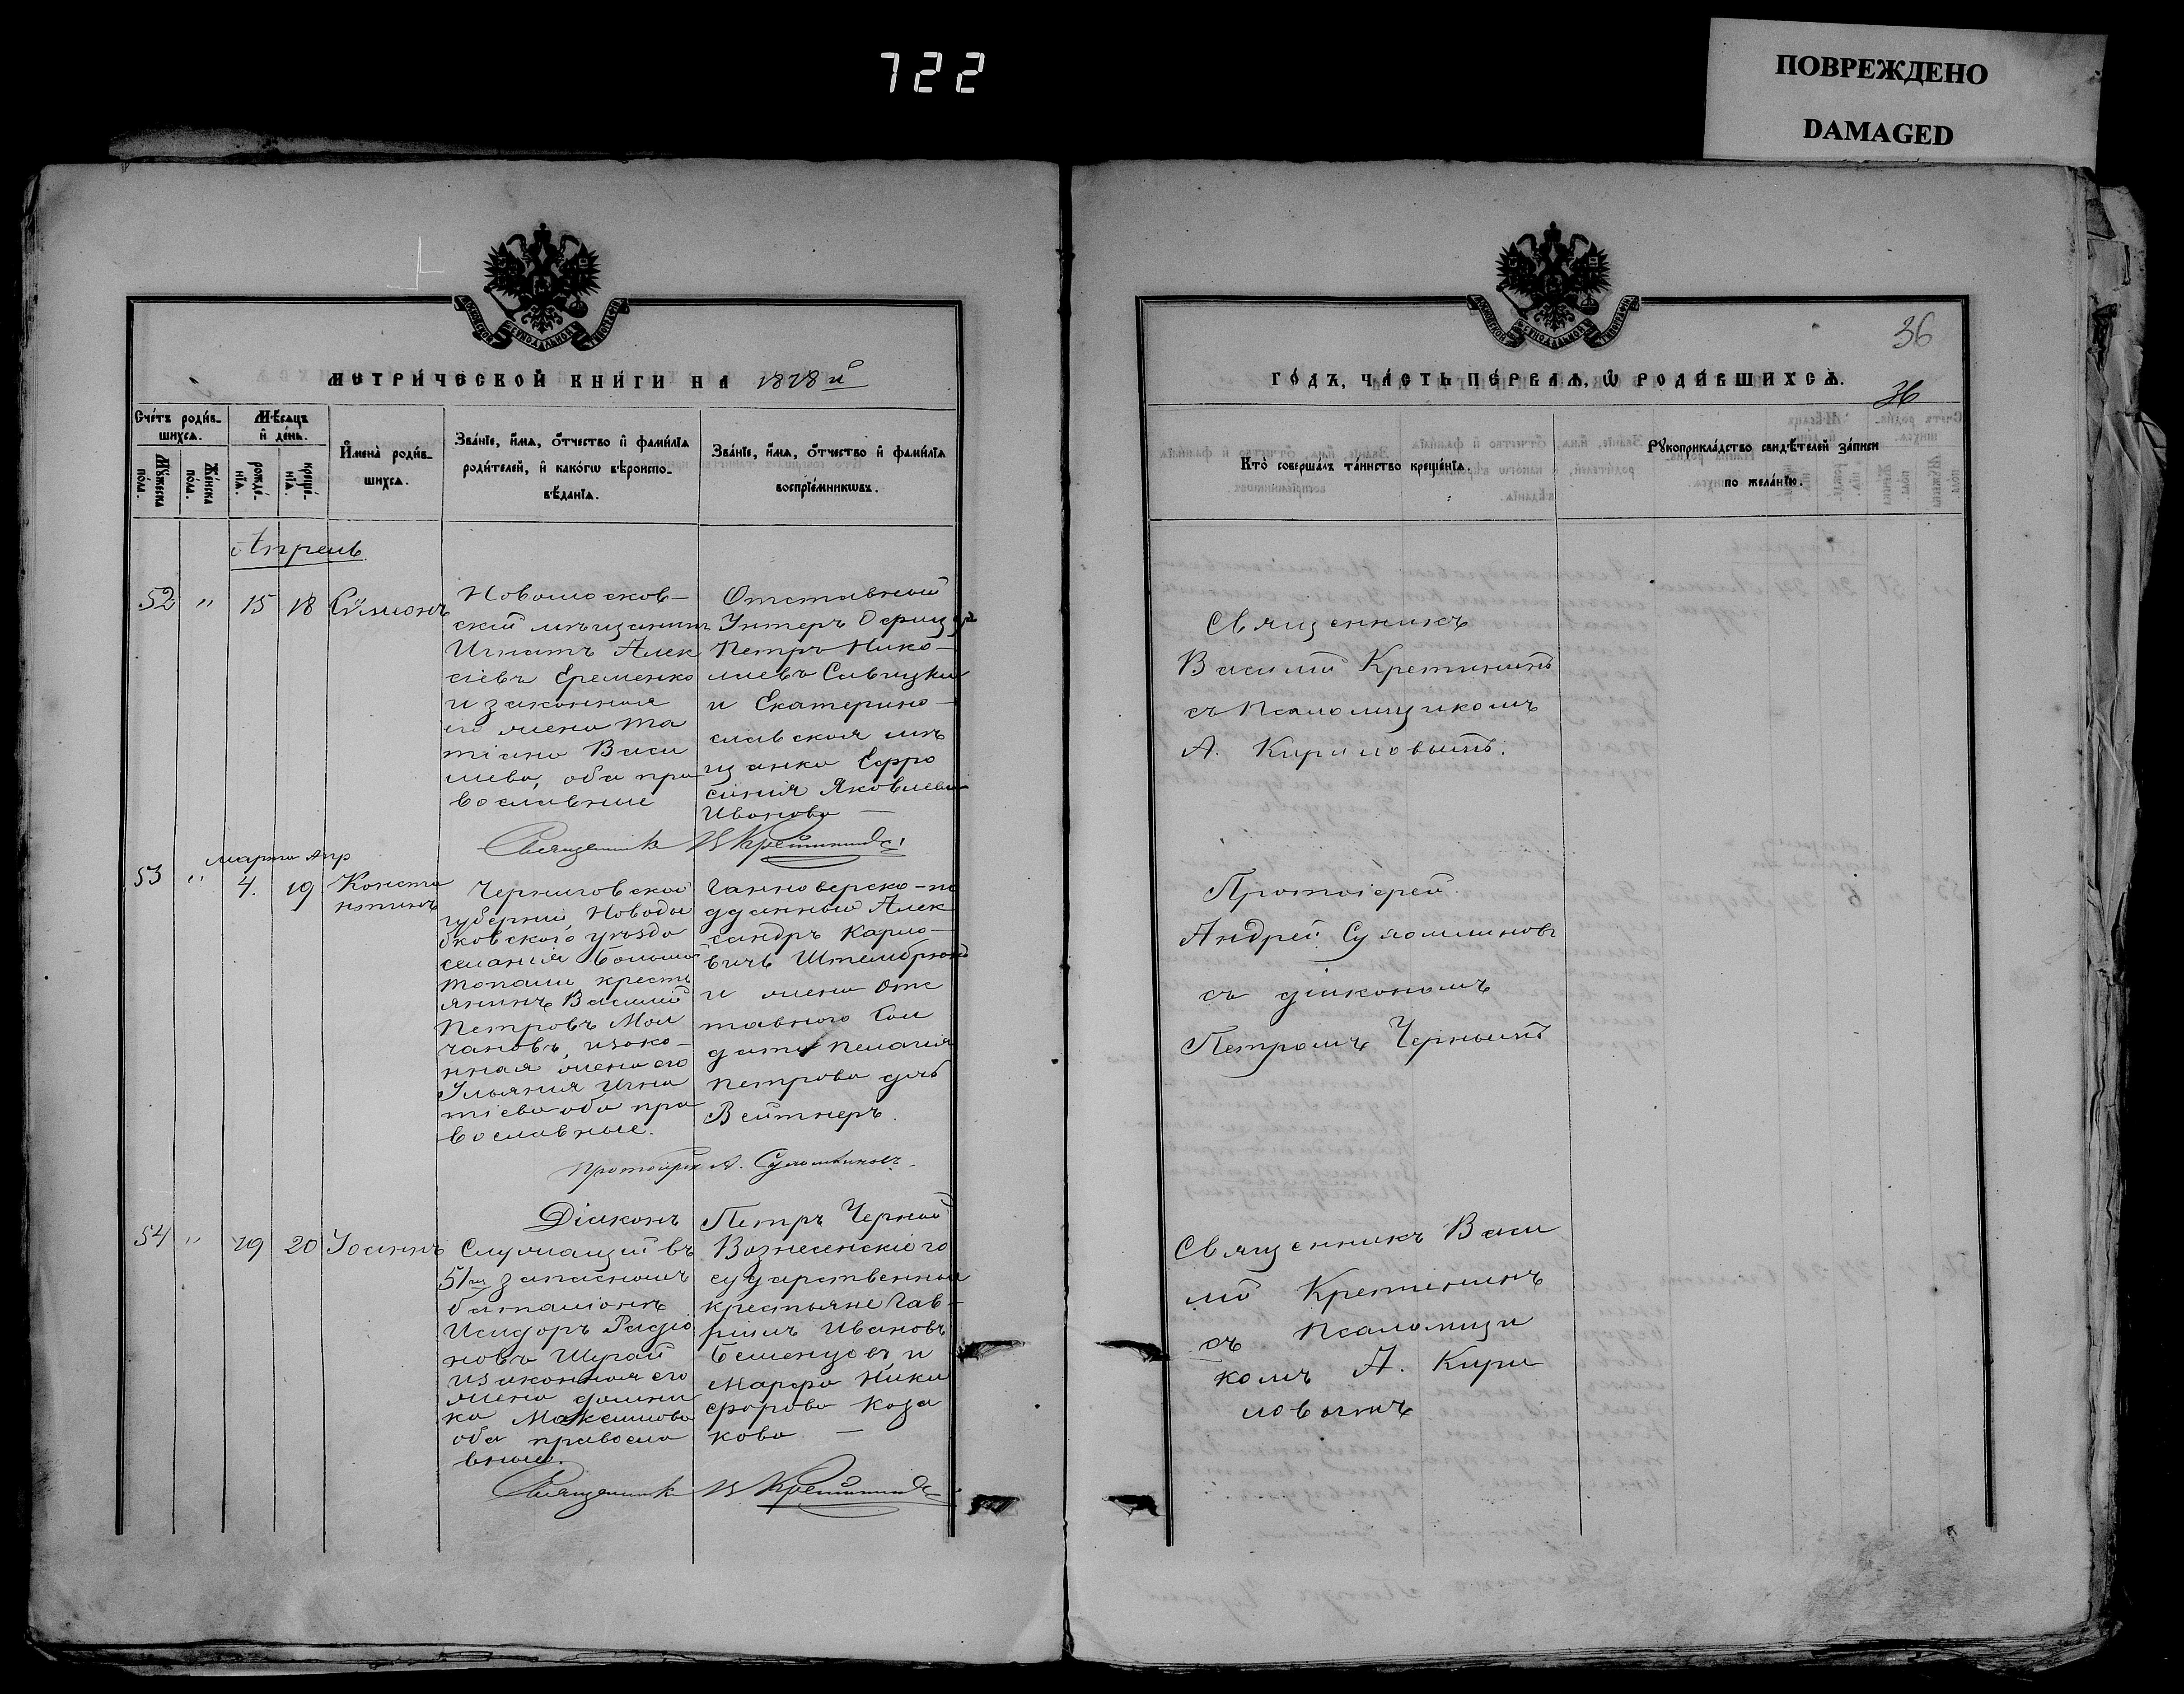 722
ПОВРЕЖДЕНО
DAMAGED
МОСКОВСКОЙ СѴНОДАЛЬНОЙ ТИПОГРАФІИ
МЕТРИ́ЧЕСКОЙ КНИ́ГИ НА 1878 й
Сче́тъ роди́в-
шихсѧ.
Мꙋ́жеска
по́ла.
Же́нска
по́ла.
Мѣ́сѧцъ
и҆ де́нь.
рожде́-
нїѧ.
креще́-
нїѧ.
И҆мена̀ роди́в-
шихсѧ.
Зва́нїе, и҆́мѧ, ѻ҆́тчество и҆ фами́лїѧ
роди́телей, и҆ како́гѡ вѣроиспо-
вѣ́данїѧ.
Зва́нїе, и҆́мѧ, ѻ҆́тчество и҆ фами́лїѧ
воспрїе́мникѡвъ.
Апрель
52 " 15 18 Сѵмеонъ
Новомосков-
скій мѣщанинъ
Игнатъ Алек
сіевъ Еременко
и законная
его жена Та
тіана Васи
лиева, оба пра
вославные
Отставный
Унтеръ Офицеръ
Петръ Нико-
лаевъ Савицкій
и Екатерино-
славская мѣ
щанка Ефро
синія Яковлева
Иванова —
Священникъ В Кретининъ
Марта Апр
53 " 4. 19 Конста
нтинъ
Черниговской
губерніи, Новозы
бковского уѣзда
селанія Больши
Топали кресть
янинъ Василій
Петровъ Мол
чановъ, изако-
нная жена его
Ульянія Игна
тіева оба пра
вославные.
Ганноверско-по
дданный Алек
сандръ Карло-
вичъ Штембрюкъ
и жена Отс
тавного Сол
дата Пелагія
Петрова дочь
Вейтнеръ.
Протоіерей А. Сулошниковъ.
Діаконъ Петръ Черный
54 " 19 20 Іоаннъ
Служащій въ
51мъ запасномъ
баталіонѣ
Исидоръ Радіо
новъ Шугай
изаконная его
жена Домни
ка Максимова
оба правосла
вные.
Вознесенскіе го
сударственные
крестьяне Гав-
ріилъ Ивановъ
и
Марфа Ники
форова Коза
кова —
Священникъ В. Кретининъ
МОСКОВСКОЙ СѴНОДАЛЬНОЙ ТИПОГРАФІИ
36
ГО́ДЪ, ЧА́СТЬ ПЕ́РВАѦ, Ѽ РОДИ́ВШИХСѦ.
36
Кто̀ соверша́лъ та́инство креще́нїѧ.
Рꙋкоприкла́дство свидѣ́телей за́писи
по жела́нїю.
Священникъ
Василій Кретининъ
съ Псаломщикомъ
А. Кириловымъ.
Протоіерей
Андрей
съ діакономъ
Петромъ Чернымъ
Священникъ Васи
лій Кретининъ
съ Псаломщи
комъ А. Кири
ловымъ